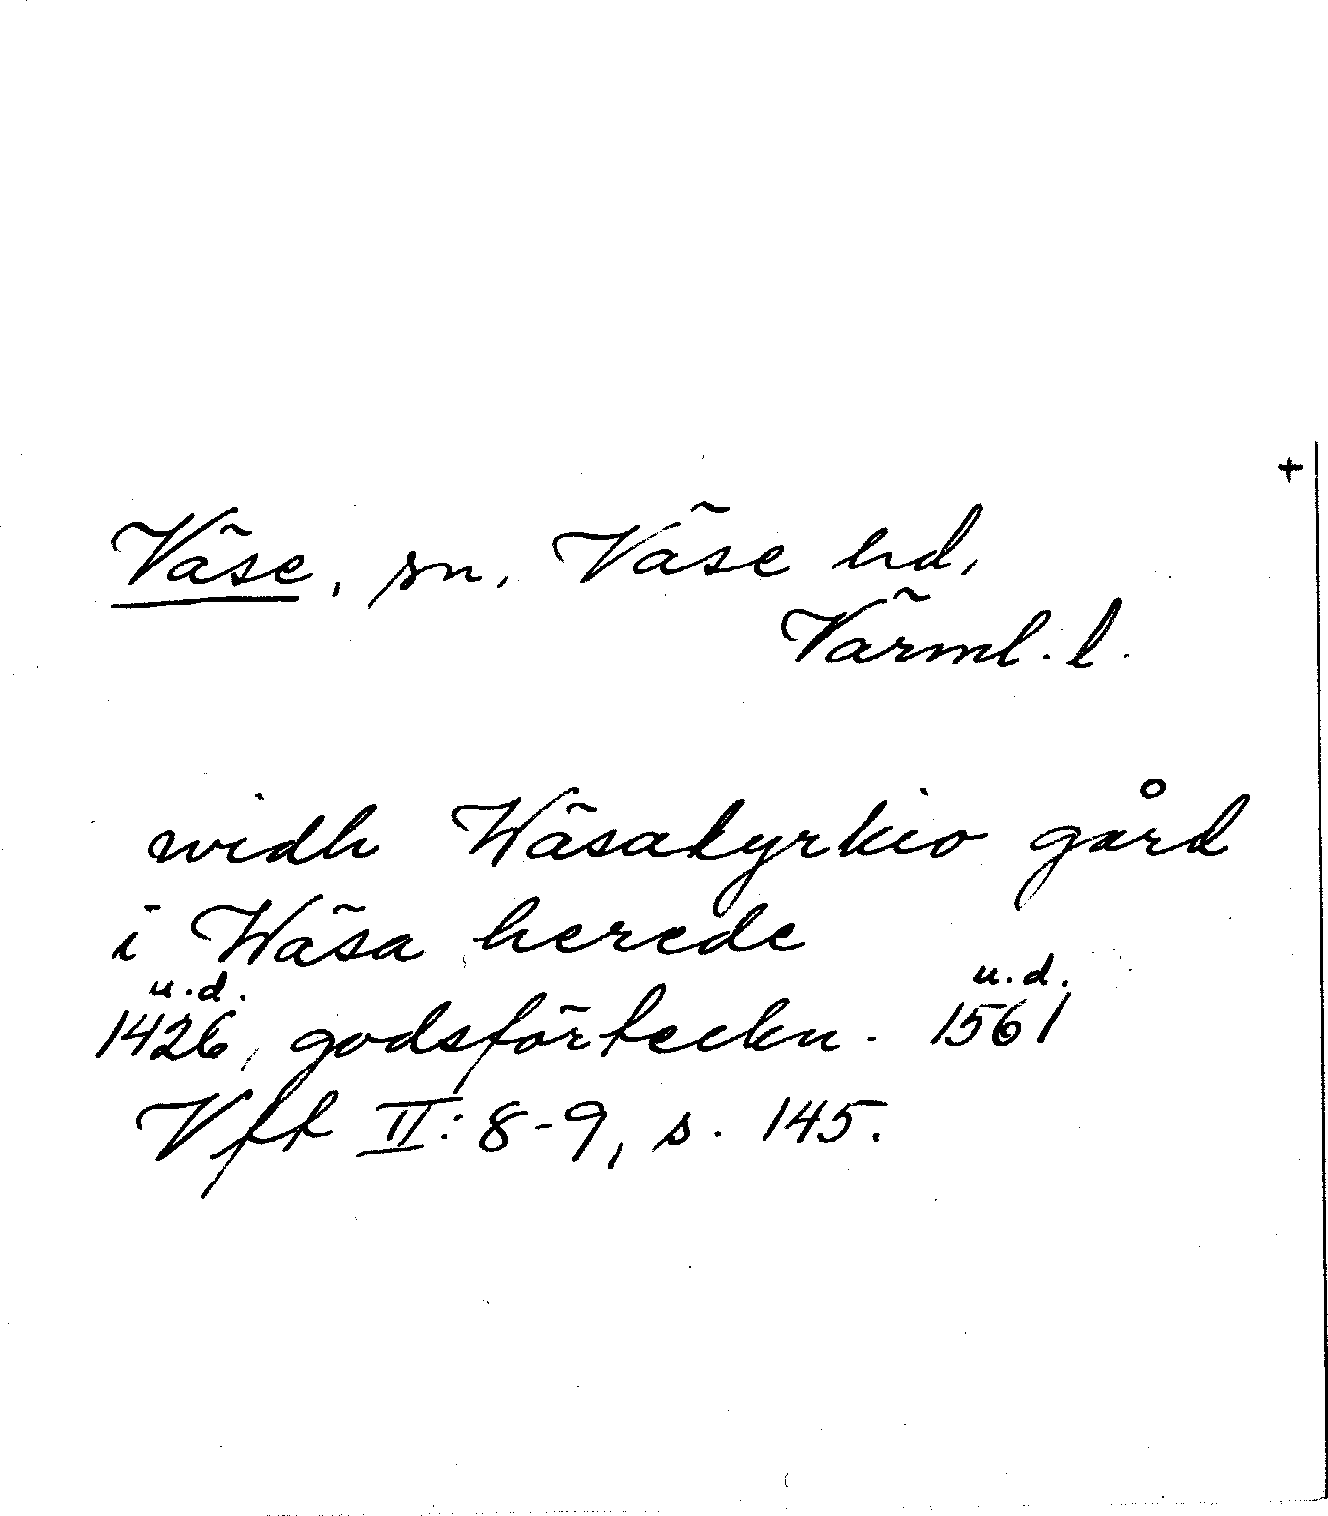 +
Väse, sn, Väse hd,
Värml. l.
widh Wäsakyrkio gård
i Wäsa herede
u.d. u.d.
1426, godsförteckn. 1561
Vfk II: 8-9, s. 145.